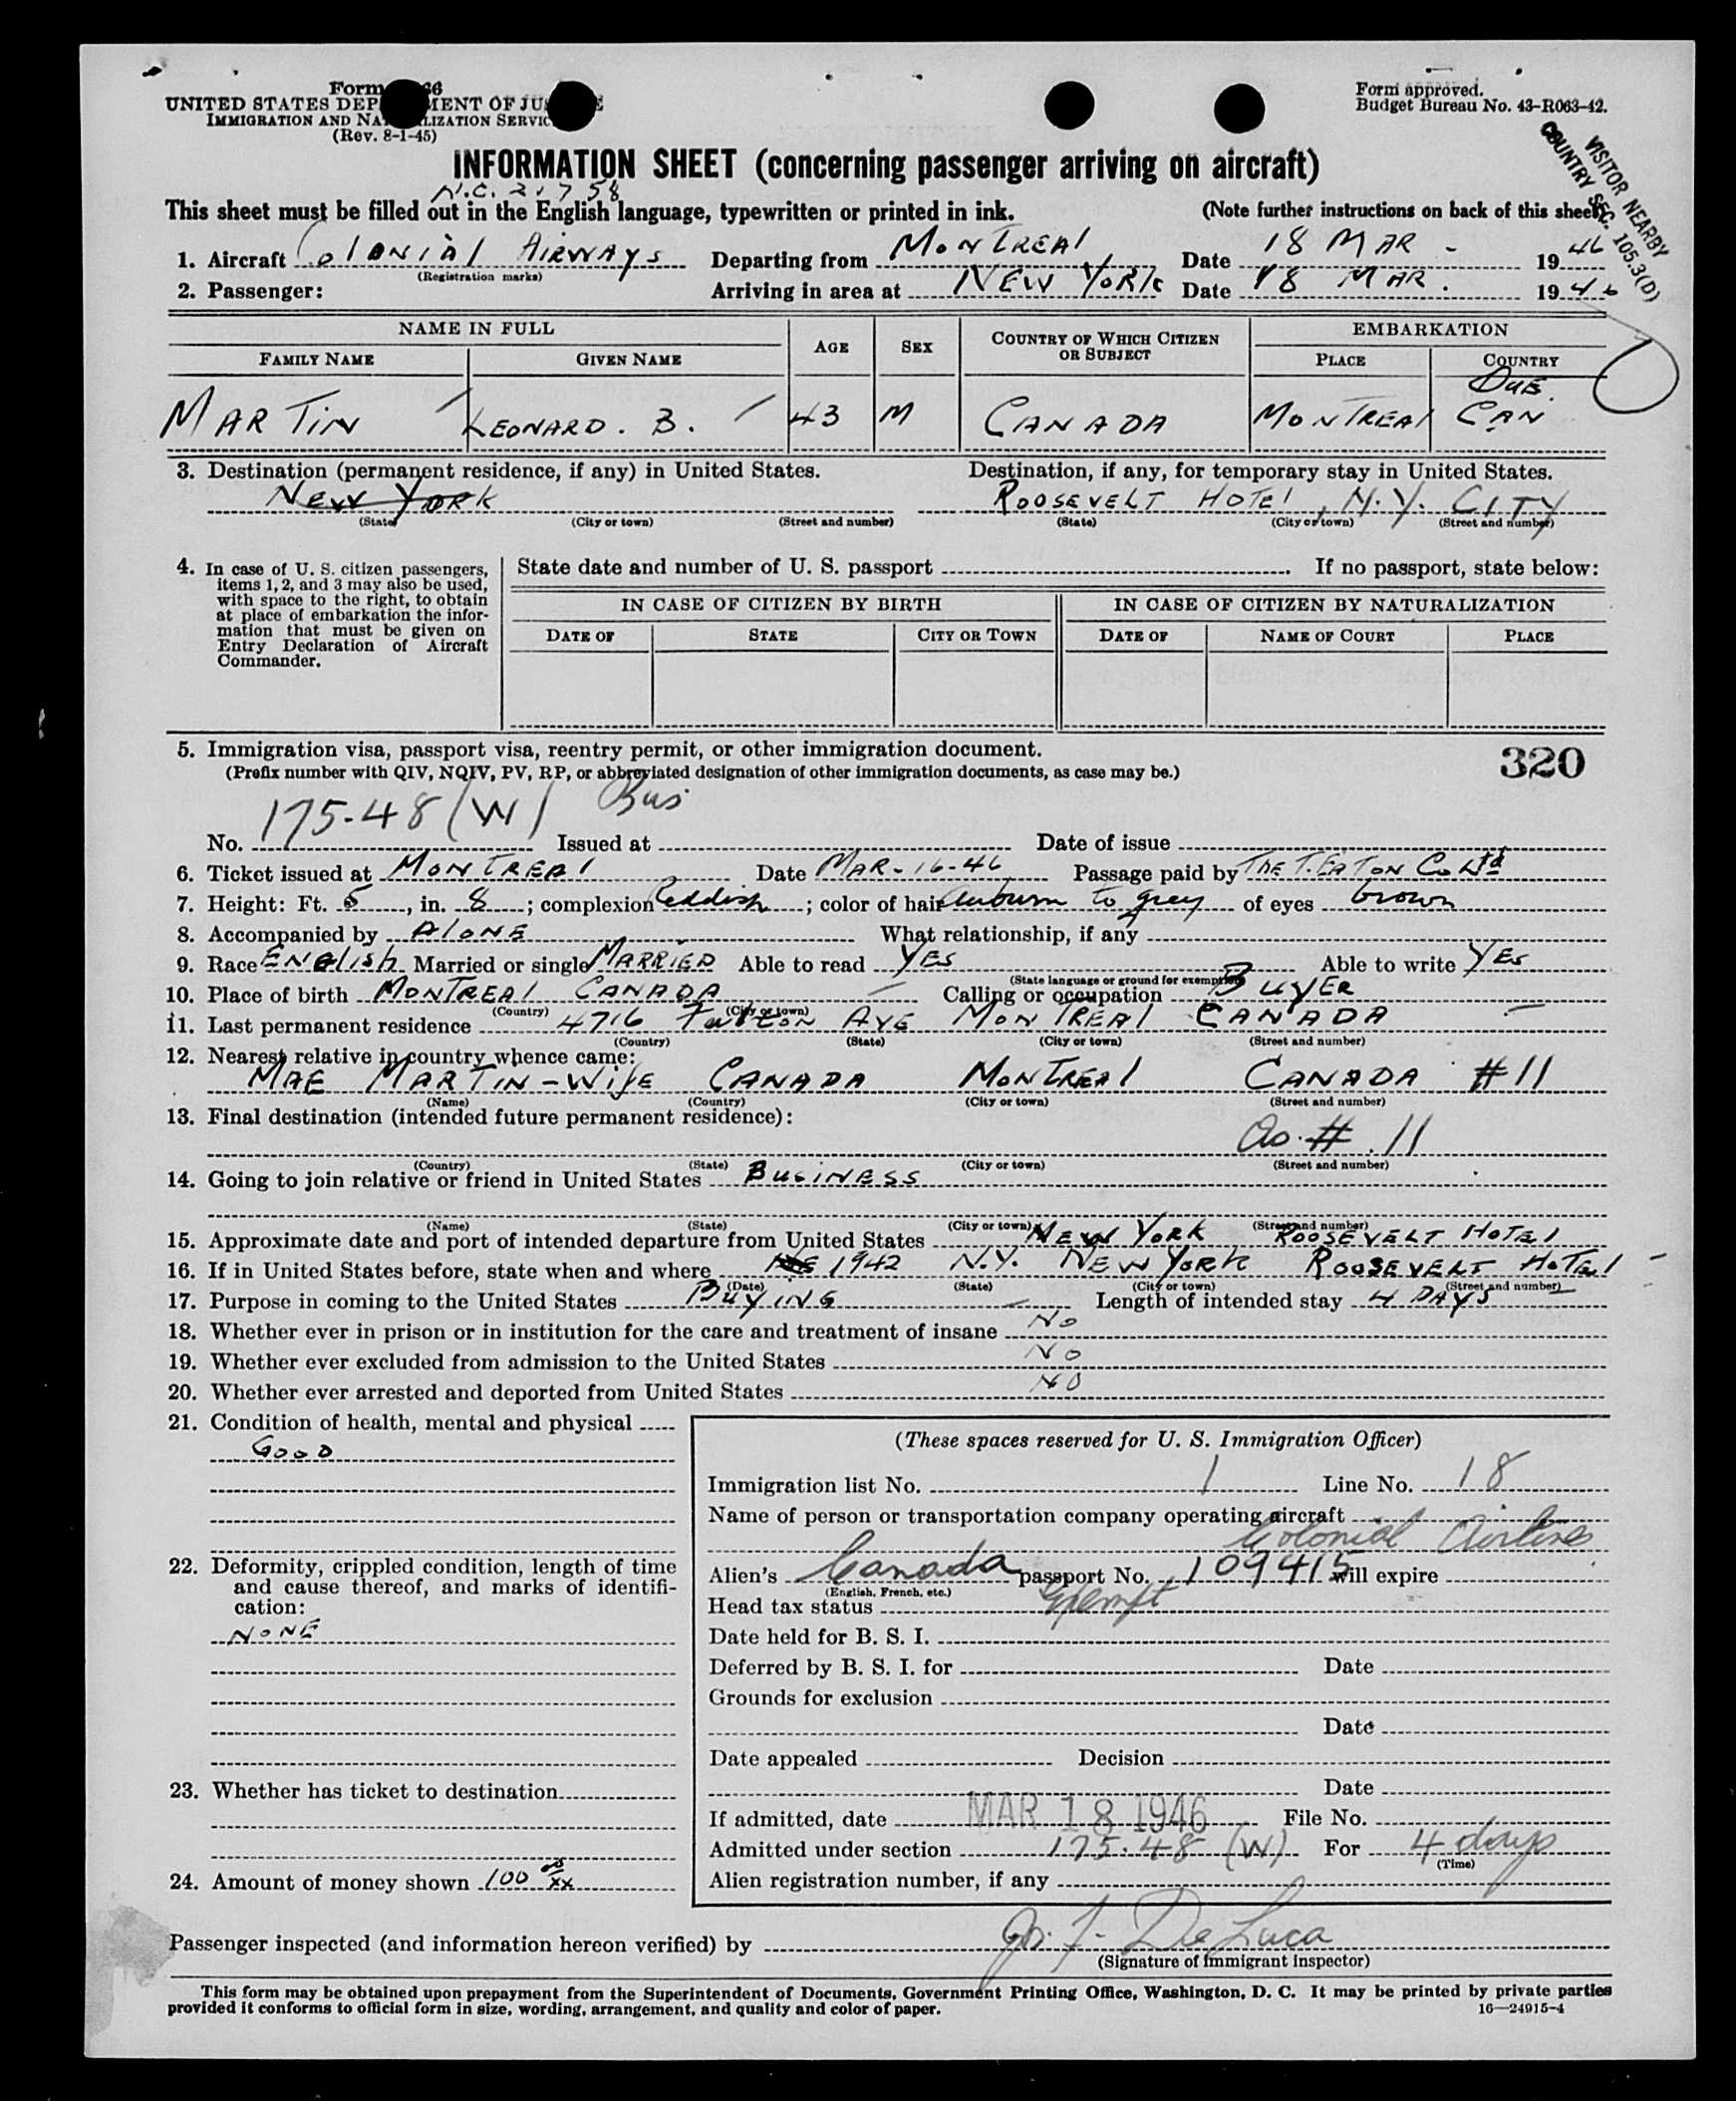 Form 66
UNITED STATES DEP MENT OF JU E
IMMIGRATION AND NA LIZATION SERVIC
(Rev. 8-1-45)
Form approved.
Budget Bureau No. 43-R063-42.
VISITOR NEARBY
COUNTRY SEC. 105.3(D)
INFORMATION SHEET (concerning passenger arriving on aircraft)
N.C. 21758
This sheet must be filled out in the English language, typewritten or printed in ink. (Note further instructions on back of this sheet
1. Aircraft Colonial Airways Departing from Montreal Date 18 Mar - 1946
(Registration marks)
2. Passenger: Arriving in area at New York Date 18 Mar. 1946
NAME IN FULL AGE SEX COUNTRY OF WHICH CITIZEN OR SUBJECT EMBARKATION
FAMILY NAME GIVEN NAME PLACE COUNTRY
Que.
Martin Leonard. B. 43 M Canada Montreal Can
3. Destination (permanent residence, if any) in United States. Destination, if any, for temporary stay in United States.
New York Roosevelt Hotel, N.Y. City
(State) (City or town) (Street and number) (State) (City or town) (Street and number)
4. In case of U. S. citizen passengers, items 1, 2, and 3 may also be used, with space to the right, to obtain at place of embarkation the information that must be given on Entry Declaration of Aircraft Commander.
State date and number of U. S. passport If no passport, state below:
IN CASE OF CITIZEN BY BIRTH IN CASE OF CITIZEN BY NATURALIZATION
DATE OF STATE CITY OR TOWN DATE OF NAME OF COURT PLACE
5. Immigration visa, passport visa, reentry permit, or other immigration document. 320
(Prefix number with QIV, NQIV, PV, RP, or abbreviated designation of other immigration documents, as case may be.)
No. 175-48 (W) Bus Issued at Date of issue
6. Ticket issued at Montreal Date Mar-16-46 Passage paid by The T. Eaton Co Ltd
7. Height: Ft. 5, in. 8; complexion Reddish; color of hair Auburn to grey of eyes brown
8. Accompanied by Alone What relationship, if any
9. Race English Married or single Married Able to read Yes Able to write Yes
(State language or ground for exemption)
10. Place of birth Montreal Canada Calling or occupation Buyer
(Country) (City or town)
11. Last permanent residence 4716 Ave Montreal Canada
(Country) (State) (City or town) (Street and number)
12. Nearest relative in country whence came:
Mae Martin - Wife Canada Montreal Canada #11
(Name) (Country) (City or town) (Street and number)
13. Final destination (intended future permanent residence):
As # 11
(Country) (State) (City or town) (Street and number)
14. Going to join relative or friend in United States Business
(Name) (State) (City or town) (Street and number)
15. Approximate date and port of intended departure from United States New York Roosevelt Hotel
16. If in United States before, state when and where 1942 N.Y. New York Roosevelt Hotel
(Date) (State) (City or town) (Street and number)
17. Purpose in coming to the United States Buying Length of intended stay 4 Days
18. Whether ever in prison or in institution for the care and treatment of insane No
19. Whether ever excluded from admission to the United States No
20. Whether ever arrested and deported from United States No
21. Condition of health, mental and physical
Good
22. Deformity, crippled condition, length of time and cause thereof, and marks of identification:
None
23. Whether has ticket to destination
24. Amount of money shown 100 00/xx
(These spaces reserved for U. S. Immigration Officer)
Immigration list No. 1 Line No. 18
Name of person or transportation company operating aircraft
Colonial Airlines
Alien's Canada passport No. 109415 will expire
(English, French, etc.)
Head tax status Exempt
Date held for B. S. I.
Deferred by B. S. I. for Date
Grounds for exclusion
Date
Date appealed Decision
Date
If admitted, date MAR 18 1946 File No.
Admitted under section 175.48 (W) For 4 days
(Time)
Alien registration number, if any
Passenger inspected (and information hereon verified) by Jos. F. De Luca
(Signature of Immigrant Inspector)
This form may be obtained upon prepayment from the Superintendent of Documents, Government Printing Office, Washington, D. C. It may be printed by private parties
provided it conforms to official form in size, wording, arrangement, and quality and color of paper. 16—24915-4